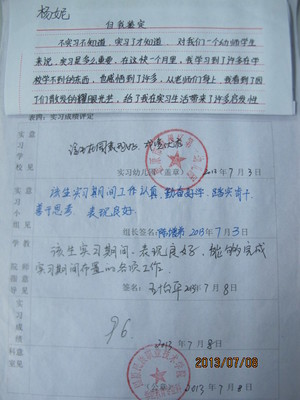 杨妮
自我鉴定
不实习不知道,实习了才知道。对我们一个幼师学生
来说,实习是多么重要。在这快一个月里,我学习到了许多在学
校学不到的东西,也感悟到了许多,从老师们身上,我看到了因
子们散发的耀眼光芒,给了我在实习生活带来了许多启发性
表四:实习成绩评定
实习学校意见
实习幼儿园(盖章) 2013年7月3日
实习小组意见
该生实习期间工作认真,勤奋好学,踏实肯干
善于思考 表现良好。
组长签名: 2013年7月3日
学院指导教师意见
该生实习期间,表现良好,能够完成
实习期间布置的各项工作。
2013年7月8日
实习成绩
96.
2013年7月8日
(公章) 2013年7月8日
2013/07/08